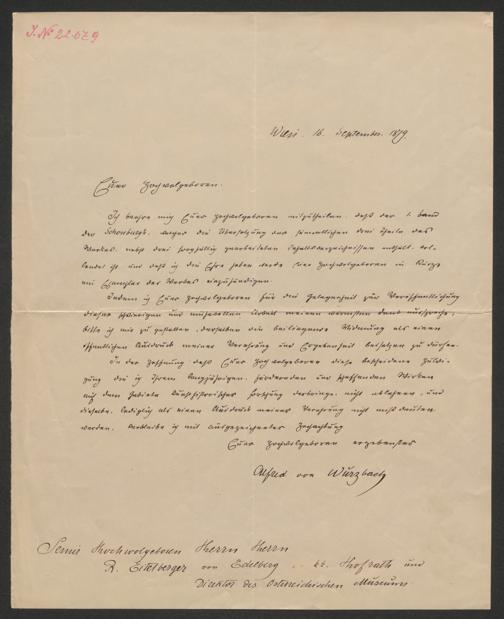 J. No 22.679
Wien. 16. September. 1879
Euer Hochwolgeboren.
Ich beehre mich Euer Hochwolgeboren mitzutheilen, daß der 1. Band
der Schouburgh, welcher die Übersetzung der sämmtlichen drei Theile des
Werkes, nebst drei sorgfältig gearbeiteten Inhaltsverzeichnissen enthält, vol-
lendet ist und daß ich die Ehre haben werde Euer Hochwolgeboren in Kürze
ein Exemplar des Werkes einzuhändigen.
Indem ich Euer Hochwolgeboren für die Gelegenheit zur Veröffentlichung
dieser schwierigen und mühevollen Arbeit meinen wärmsten Dank ausspreche,
bitte ich mir zu gestatten, derselben die beiliegende Widmung als einen
öffentlichen Ausdruck meiner Verehrung und Ergebenheit beisetzen zu dürfen.
In der Hoffnung daß Euer Hochwolgeboren diese bescheidene Huldi-
gung die ich Ihrem langjährigen, fördernden und schaffenden Wirken
auf dem Gebiete kunsthistorischer Forschung darbringe, nicht ablehnen, und
dieselbe lediglich als einen Ausdruck meiner Verehrung nicht mißdeuten
werden, verbleibe ich mit ausgezeichneter Hochachtung
Euer Hochwolgeboren ergebenster
Alfred von Wurzbach
Seiner Hochwolgeboren Herrn Herrn
R. Eitelberger von Edelberg k.k. Hofrath und
Direktor des Österreichischen Museums